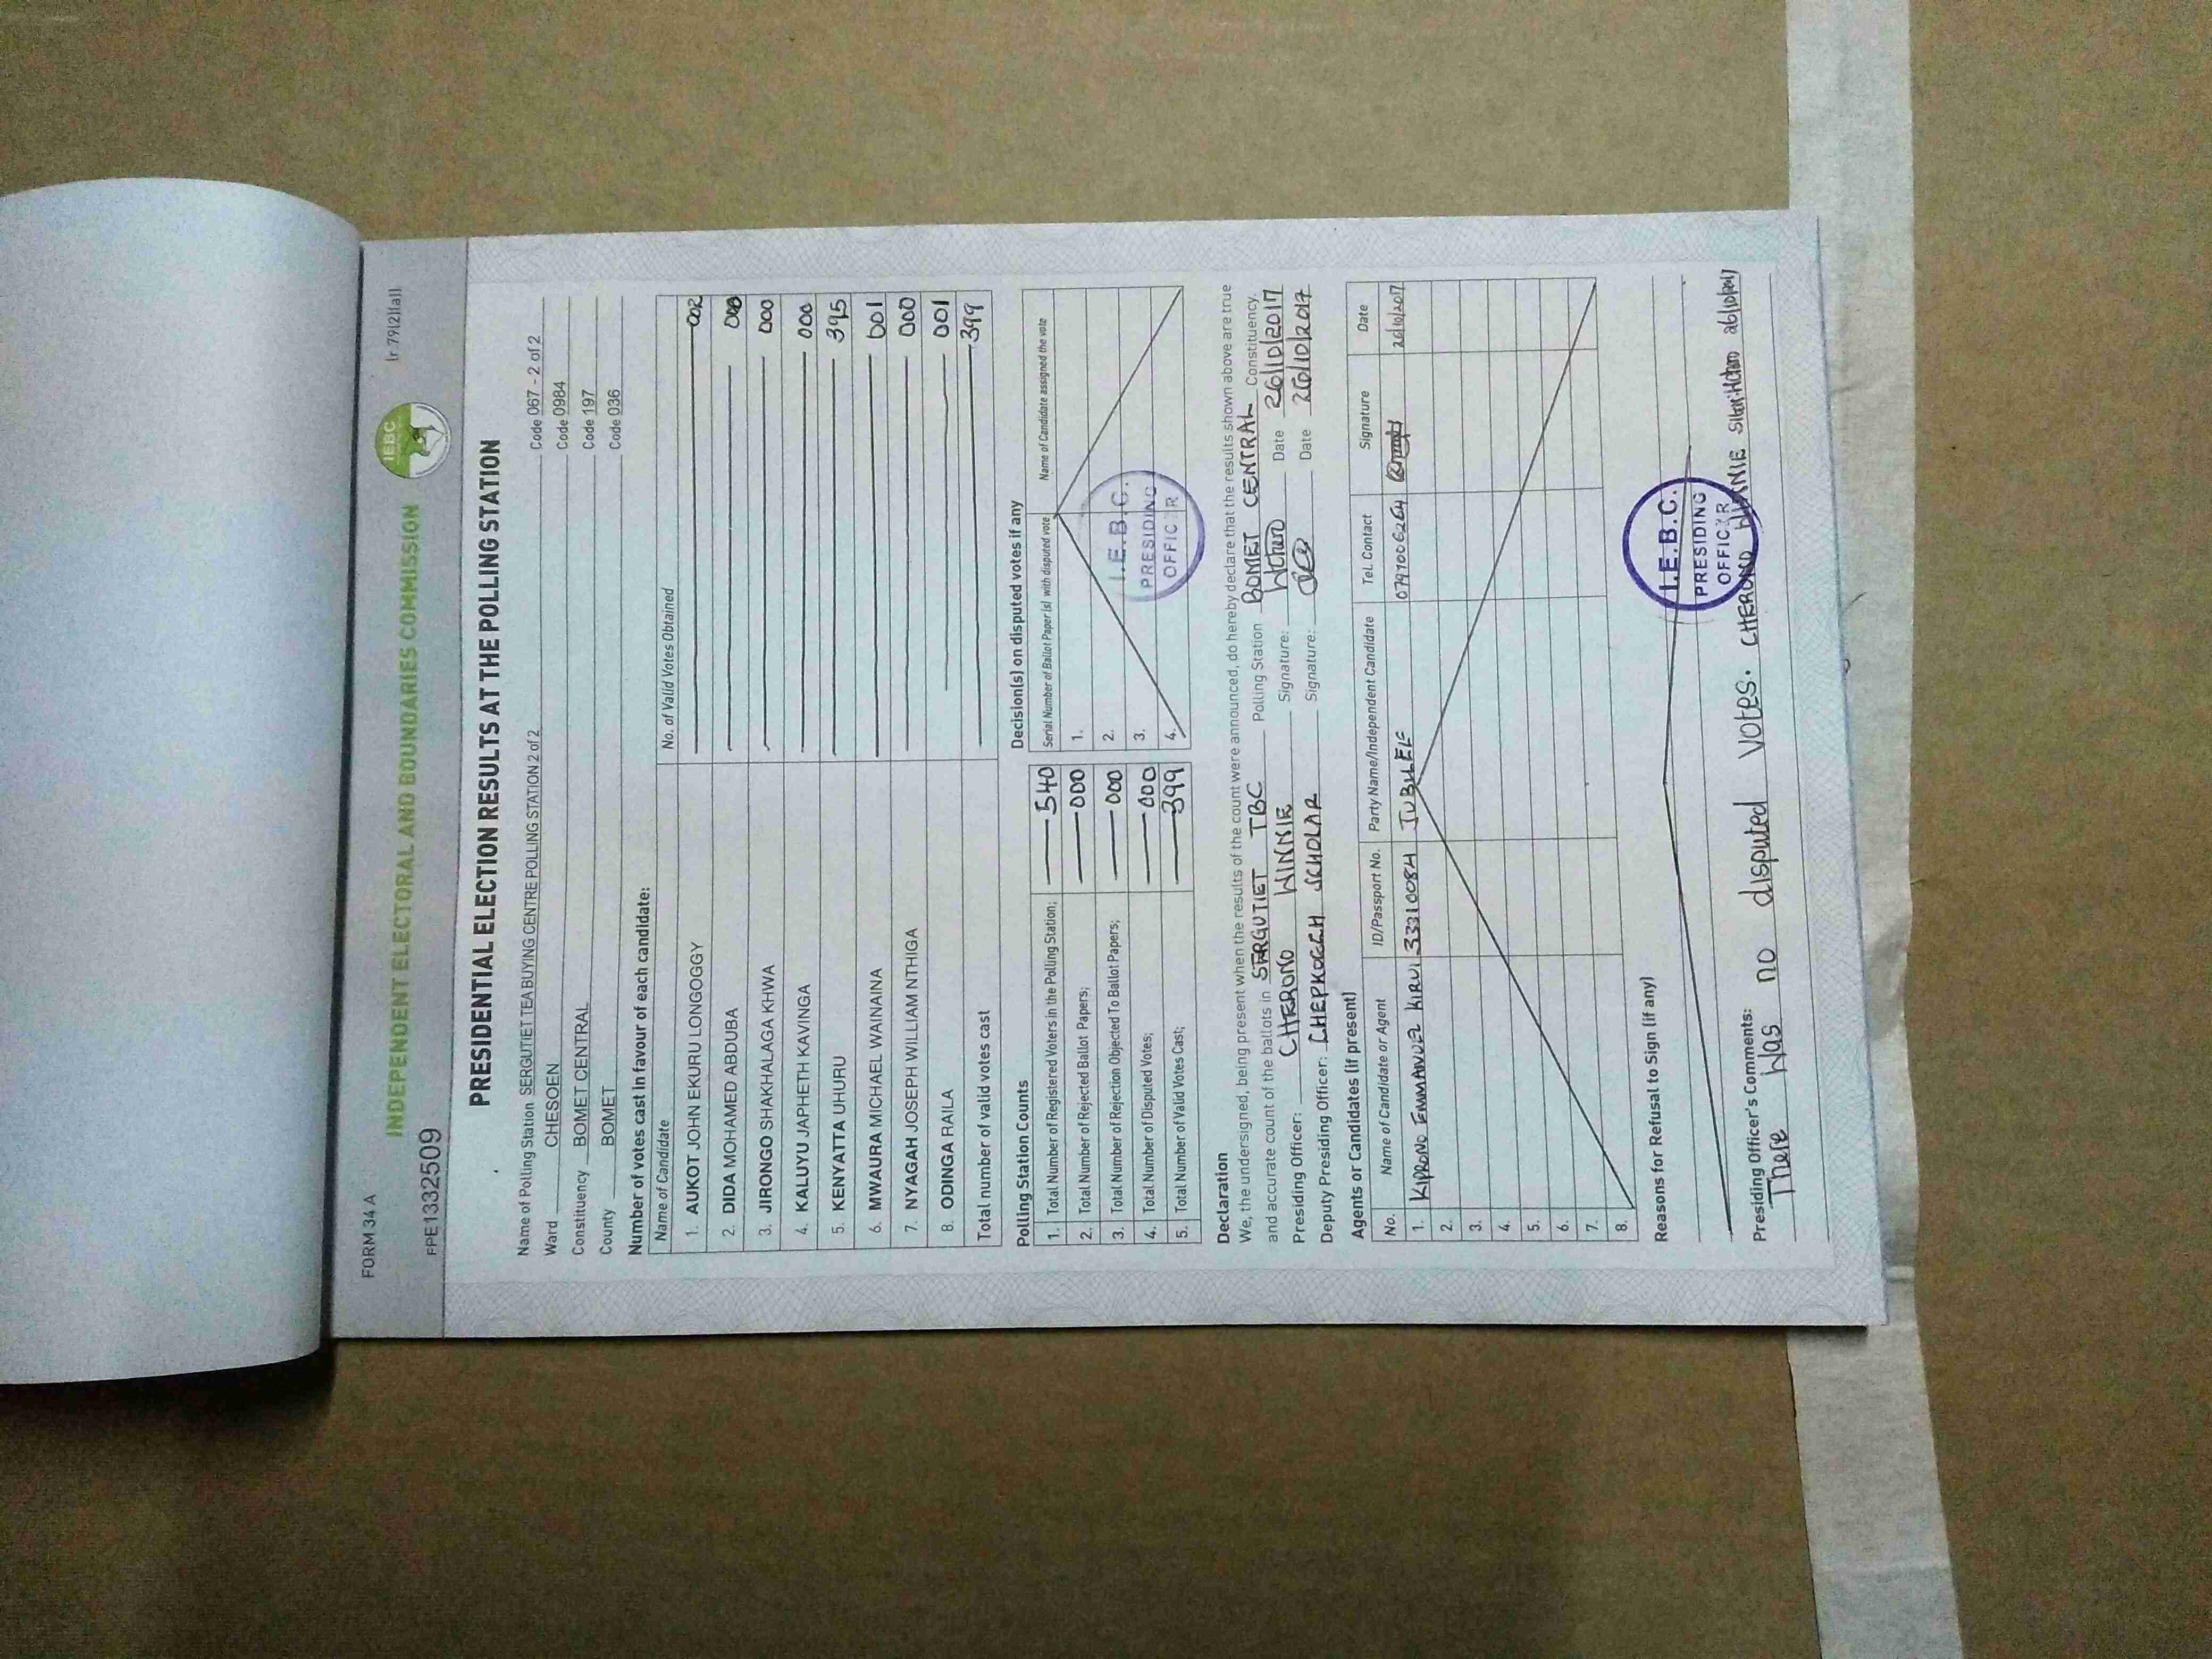 FORM 34 A
INDEPENDENT ELECTORAL AND BOUNDARIES COMMISSION
IEBC
(r.79(2)(a))
FPE1332509
PRESIDENTIAL ELECTION RESULTS AT THE POLLING STATION
Name of Polling Station SERGUTIET TEA BUYING CENTRE POLLING STATION 2 of 2 Code 067 - 2 of 2
Ward CHESOEN Code 0984
Constituency BOMET CENTRAL Code 197
County BOMET Code 036
Number of votes cast in favour of each candidate:
Name of Candidate No. of Valid Votes Obtained
1. AUKOT JOHN EKURU LONGOGGY 002
2. DIDA MOHAMED ABDUBA 000
3. JIRONGO SHAKHALAGA KHWA 000
4. KALUYU JAPHETH KAVINGA 000
5. KENYATTA UHURU 395
6. MWAURA MICHAEL WAINAINA 001
7. NYAGAH JOSEPH WILLIAM NTHIGA 000
8. ODINGA RAILA 001
Total number of valid votes cast 399
Polling Station Counts
1. Total Number of Registered Voters in the Polling Station; 540
2. Total Number of Rejected Ballot Papers; 000
3. Total Number of Rejection Objected To Ballot Papers; 000
4. Total Number of Disputed Votes; 000
5. Total Number of Valid Votes Cast; 399
Decision(s) on disputed votes if any
Serial Number of Ballot Paper(s) with disputed vote Name of Candidate assigned the vote
1.
2.
3.
4.
I.E.B.C.
PRESIDING
OFFIC R
Declaration
We, the undersigned, being present when the results of the count were announced, do hereby declare that the results shown above are true
and accurate count of the ballots in SERGUTIET TBC Polling Station BOMET CENTRAL Constituency.
Presiding Officer: CHERONO WINNIE Signature: Date 26/10/2017
Deputy Presiding Officer: CHEPKOECH SCHOLAR Signature: Date 26/10/2017
Agents or Candidates (if present)
No. Name of Candidate or Agent ID/Passport No. Party Name/Independent Candidate Tel. Contact Signature Date
1. KIPRONO EMMANUEL KIRUI 33310084 JUBILEE 0797006264 26/10/2017
2.
3.
4.
5.
6.
7.
8.
Reasons for Refusal to Sign (if any)
I.E.B.C.
PRESIDING
OFFIC R
Presiding Officer's Comments:
There was no disputed votes. CHERONO WINNIE 26/10/2017